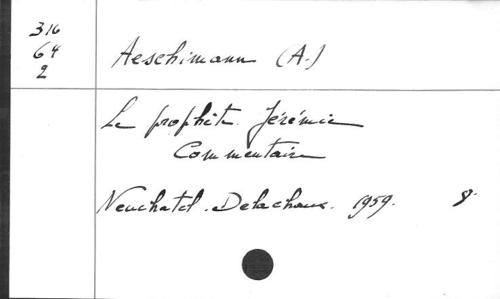 316
64
2
Aeschimann (A.)
Le prophète Jérémie
Commentaire
Neuchatel. Delachaux. 1959. 8°